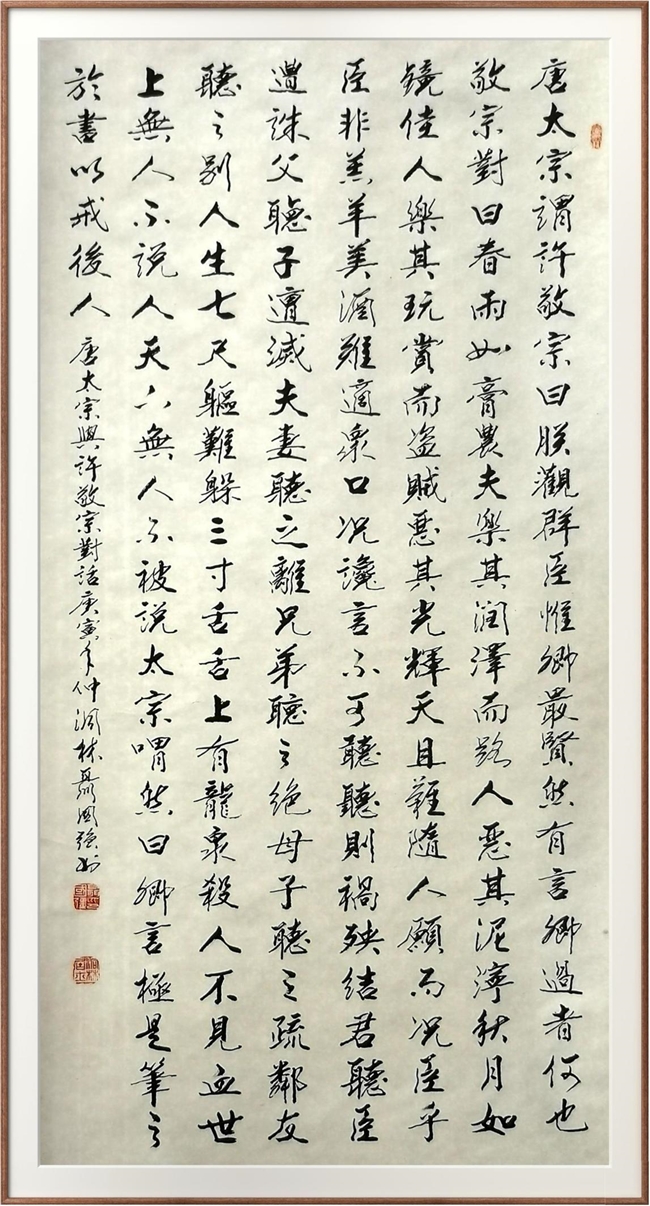 唐太宗謂許敬宗曰朕觀群臣惟卿最賢然有言卿過者何也
敬宗對曰春雨如膏農夫樂其润澤而路人惡其泥濘秋月如
镜佳人樂其玩赏而盗贼惡其光輝天且難隨人願而况臣乎
臣非羔羊美酒難適衆口况讒言不可聽聽則禍殃结君聽臣
遭誅父聽子遭滅夫妻聽之離兄弟聽之绝母子聽之疏鄰友
聽之别人生七尺軀難躲三寸舌舌上有龍泉殺人不見血世
上無人不説人天下無人不被説太宗喟然曰卿言極是筆之
於書以戒後人 唐太宗與許敬宗對話庚寅年仲